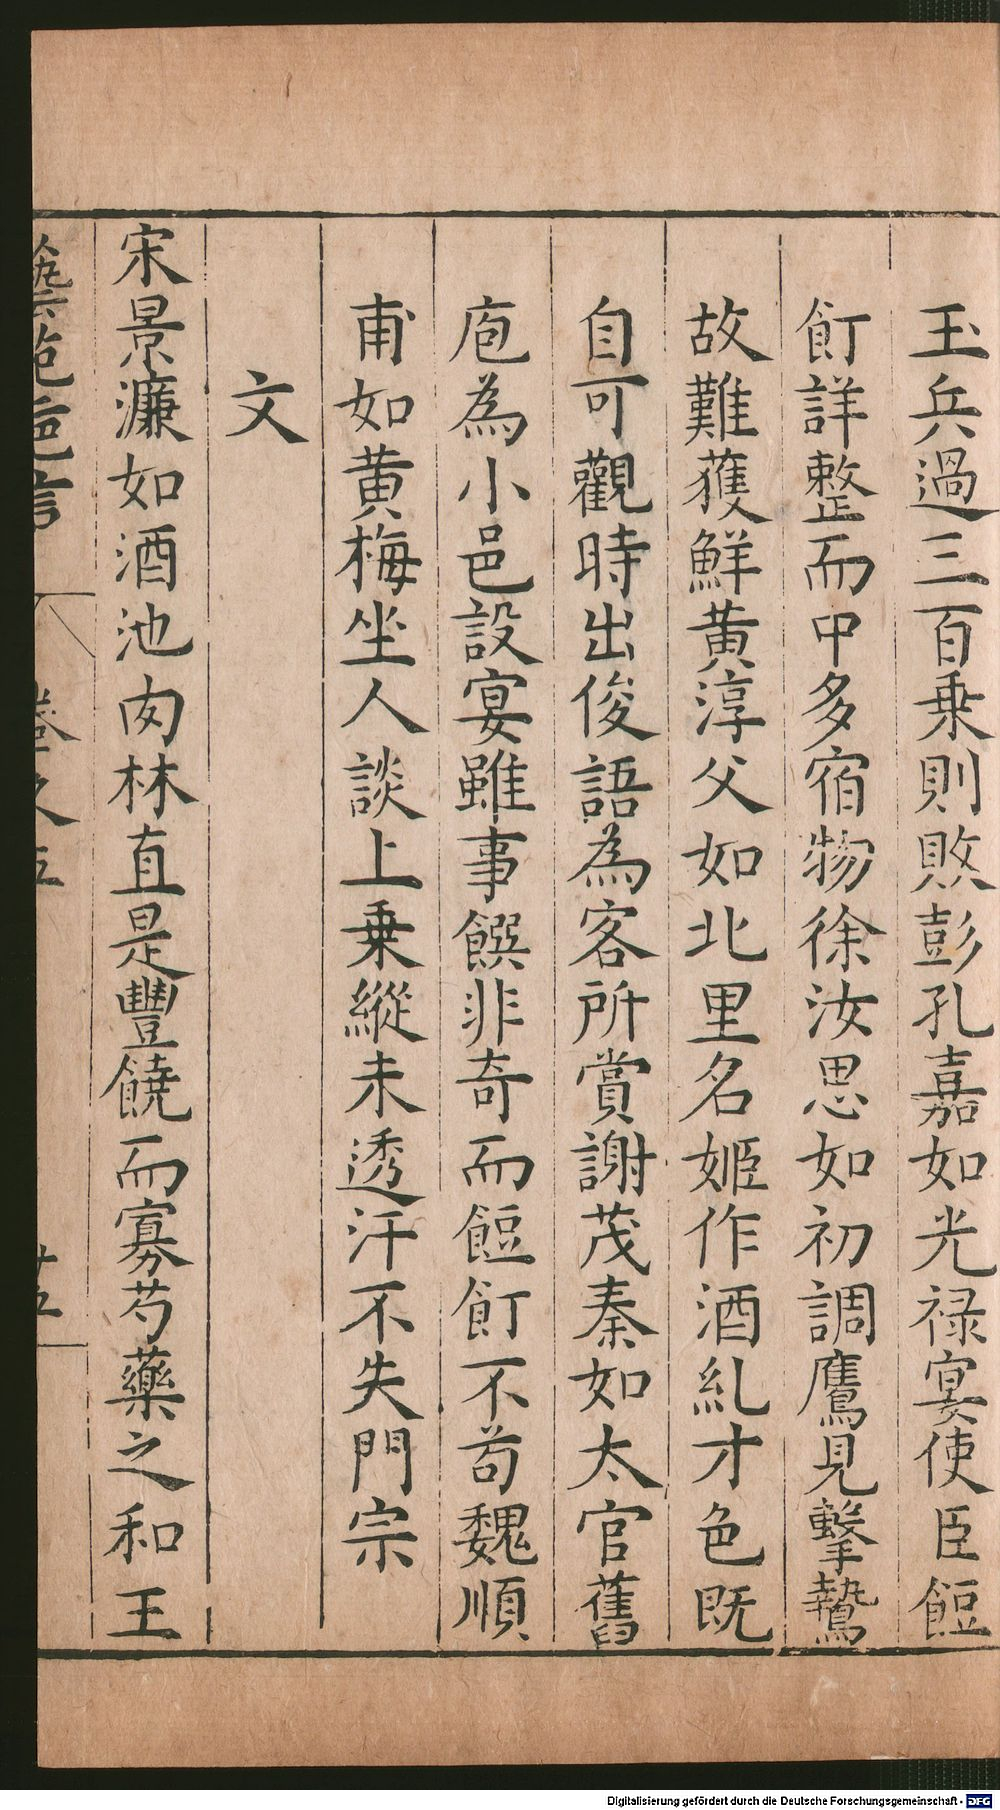 玉兵過三百乗則敗彭孔嘉如光禄宴使臣餖
飣詳整而中多宿物徐汝思如初調鷹見擊鷙
故難獲鮮黄淳父如北里名姬作酒糺才色既
自可觀時出俊語為客所賞謝茂秦如太官舊
庖為小邑設宴雖事饌非奇而餖飣不苟魏順
甫如黄梅坐人談上乗縱未透汗不失門宗
文
宋景濂如酒池肉林直是豐饒而寡芍藥之和王
藝苑巵言
卷之五
廿五
Digitalisierung gefördert durch die Deutsche Forschungsgemeinschaft - DFG